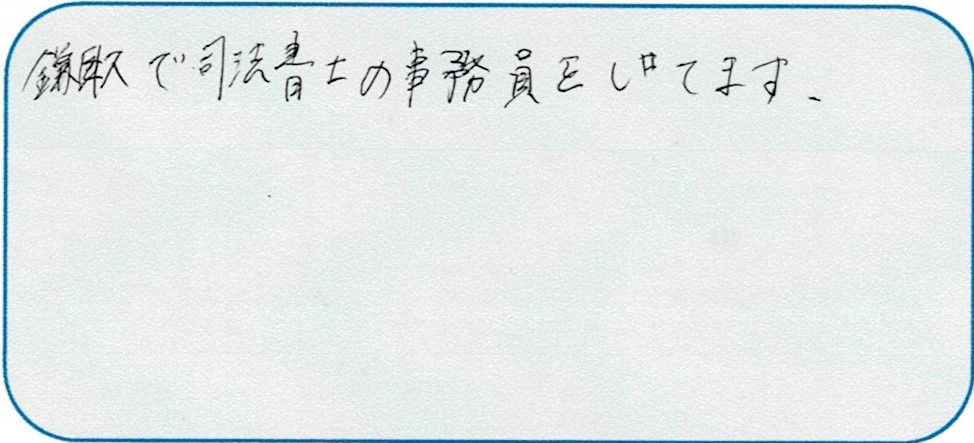 鎌取で司法書士の事務員をしてます。